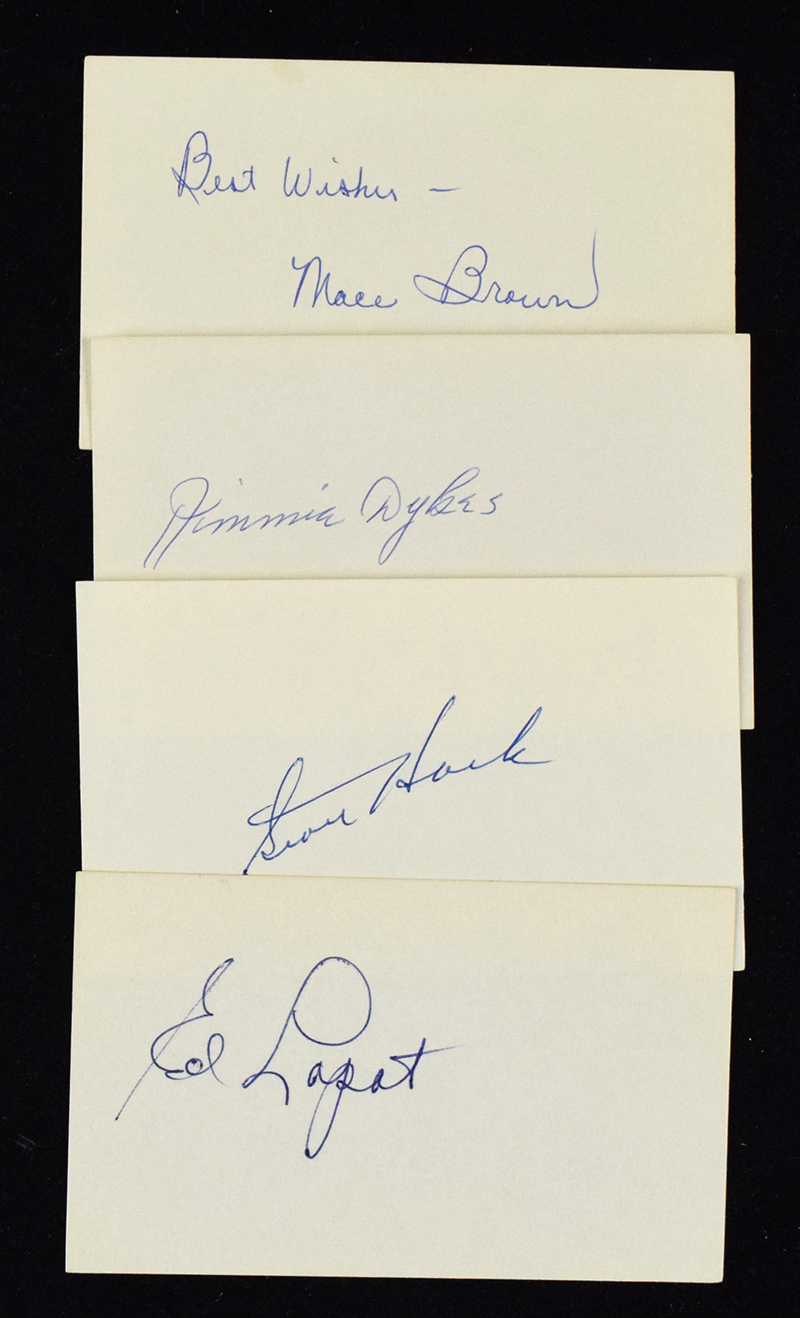 Best Wishes –
Mace Brown
Jimmie Dykes
Stan Hack
Ed Lopat